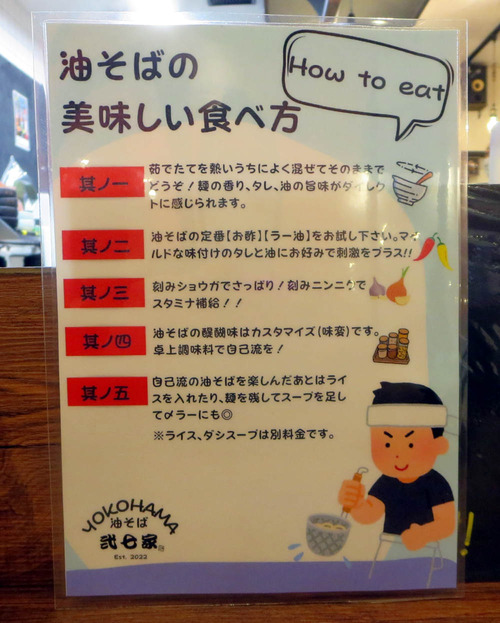 油そばの
美味しい食べ方
How to eat
其ノ一
茹でたてを熱いうちによく混ぜてそのままで
どうぞ！麺の香り、タレ、油の旨味がダイレク
トに感じられます。
其ノ二
油そばの定番【お酢】【ラー油】をお試し下さい。マイ
ルドな味付けのタレと油にお好みで刺激をプラス!!
其ノ三
刻みショウガでさっぱり！刻みニンニクで
スタミナ補給！！
其ノ四
油そばの醍醐味はカスタマイズ(味変)です。
卓上調味料で自己流を！
其ノ五
自己流の油そばを楽しんだあとはライ
スを入れたり、麺を残してスープを足し
て〆ラーにも◎
※ライス、ダシスープは別料金です。
YOKOHAMA
油そば
弐七家
Est. 2022